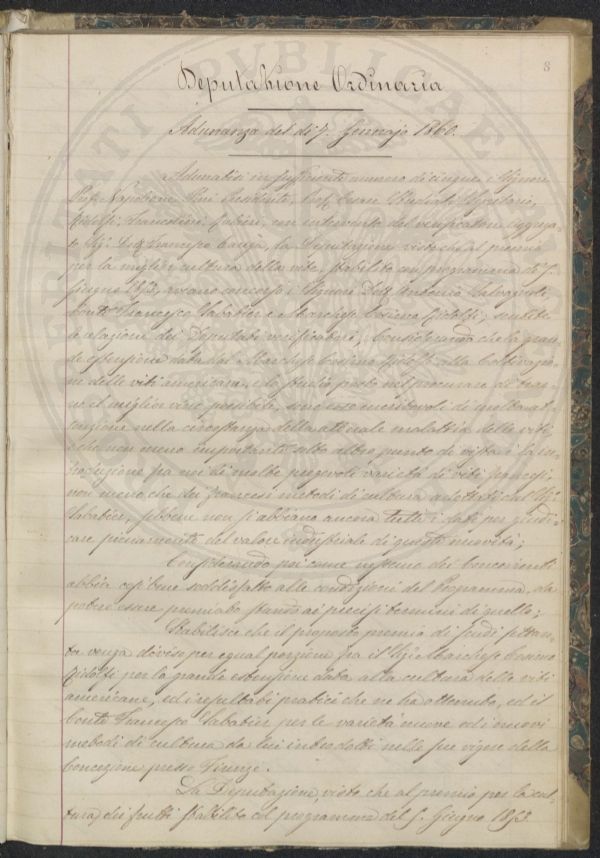 8
Deputazione Ordinaria
Adunanza del dì 7. Gennajo 1860.
Adunatisi in sufficiente numero di cinque i Signori
Prof. Napoleone Pini Presidente, Prof. Cesare Segretario,
Ridolfi, Rubini, con intervento del verificatore aggrega-
to Sig. Dott. Francesco la Deputazione visto che al premio
per la miglior cultura della vite, stabilito con programma di 5.
Giugno 1853, avevano concorso i Signori Dott. Antonio Salvagnoli,
Conte Francesco Sabatier e Marchese Cosimo Ridolfi; sentita
la relazione dei Deputati verificatori; Considerando che la gran-
de estensione data dal Marchese Cosimo Ridolfi alla coltivazio-
ne delle viti americane, e lo studio posto nel procurare di trar-
ne il miglior vino possibile, sono cose meritevoli di molta at-
tenzione nella circostanza della attuale malattia delle viti;
e che non meno importante sotto altro punto di vista è la in-
troduzione fra noi di molte pregevoli varietà di viti francesi,
non meno che dei francesi metodi di cultura adottati dal Sig.
Sabatier, sebbene non si abbiano ancora tutti i dati per giudi-
care pienamente del valore industriale di queste novità;
Considerando poi come nessuno dei Concorrenti
abbia così bene soddisfatto alle condizioni del Programma, da
potere essere premiato stando ai precisi termini di quello;
Stabilisce che il proposto premio di scudi settan-
ta venga diviso per egual porzione fra il Sig. Marchese Cosimo
Ridolfi per la grande estensione data alla cultura delle viti
americane, ed i resultati pratici che ne ha ottenuto, ed il
Conte Francesco Sabatier per le varietà nuove ed i nuovi
metodi di cultura da lui introdotti nelle sue vigne della
Concezione presso Firenze.
La Deputazione, visto che al premio per la cul-
tura dei frutti stabilito col programma del 5. Giugno 1853